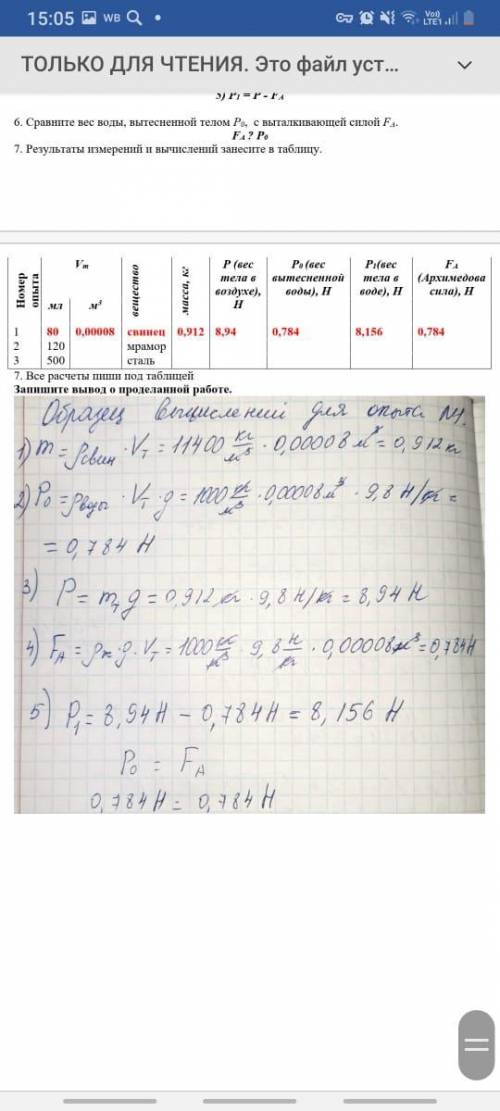 15:05 WB Vo)) LTE1
ТОЛЬКО ДЛЯ ЧТЕНИЯ. Это файл уст...
5) P1 = P - FА
6. Сравните вес воды, вытесненной телом P0, с выталкивающей силой FА.
FА ? P0
7. Результаты измерений и вычислений занесите в таблицу.
Номер опыта Vт вещество масса, кг P (вес тела в воздухе), Н P0 (вес вытесненной воды), Н P1(вес тела в воде), Н FА (Архимедова сила), Н
мл м³
1 80 0,00008 свинец 0,912 8,94 0,784 8,156 0,784
2 120 мрамор
3 500 сталь
7. Все расчеты пиши под таблицей
Запишите вывод о проделанной работе.
Образец вычислений для опыта №1.
1) m = ρсвин · Vт = 11400 кг/м³ · 0,00008 м³ = 0,912 кг
2) P0 = ρводы · Vт · g = 1000 кг/м³ · 0,00008 м³ · 9,8 Н/кг =
= 0,784 Н
3) P = mт g = 0,912 кг · 9,8 Н/кг = 8,94 Н
4) FА = ρж · g · Vт = 1000 кг/м³ · 9,8 Н/кг · 0,00008 м³ = 0,784 Н
5) P1 = 8,94 Н − 0,784 Н = 8,156 Н
P0 = FА
0,784 Н = 0,784 Н